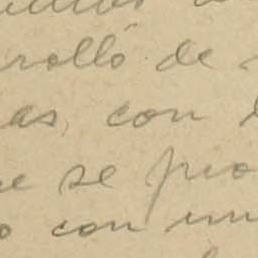 rolló de
as, con
e se pro
o con un